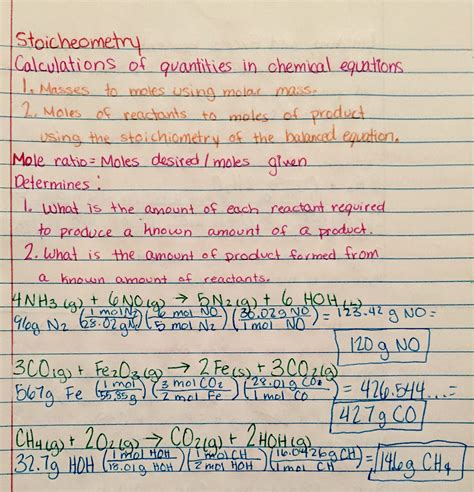 Stoicheometry
Calculations of quantities in chemical equations
1. Masses to moles using molar mass.
2. Moles of reactants to moles of product
using the stoichiometry of the balanced equation.
Mole ratio = Moles desired / moles given
Determines:
1. What is the amount of each reactant required
to produce a known amount of a product.
2. What is the amount of product formed from
a known amount of reactants.
4NH3 (g) + 6NO(g) → 5N2(g) + 6 HOH (l)
96g N2 (1 mol N2 / 28.02g N2) (6 mol NO / 5 mol N2) (30.02g NO / 1 mol NO) = 123.42 g NO =
120 g NO
3CO(g) + Fe2O3(g) → 2 Fe(s) + 3CO2(g)
567g Fe (1 mol / 55.85g) (3 mol CO2 / 2 mol Fe) (28.01g CO2 / 1 mol CO) = 426.544... =
427g CO
CH4(g) + 2O2(g) → CO2(g) + 2HOH(g)
32.7g HOH (1 mol HOH / 18.01g HOH) (1 mol CH / 2 mol HOH) (16.0426g CH / 1 mol CH) =